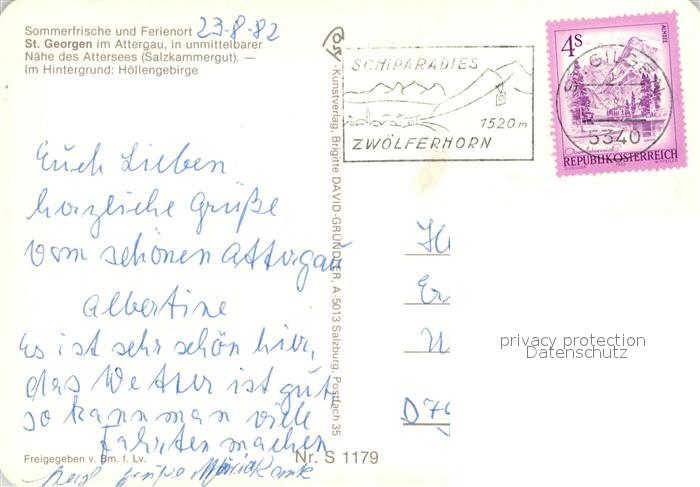 Sommerfrische und Ferienort 23-8-82
St. Georgen im Attergau, in unmittelbarer
Nähe des Attersees (Salzkammergut). —
Im Hintergrund: Höllengebirge
Euch Lieben
herzliche Grüße
vom schönen Attergau
Albertine
Es ist sehr schön hier,
das Wetter ist gut
so kann man viele
Fahrten machen
Freigegeben v. Bm. f. Lv.
Nr. S 1179
Kunstverlag, Brigitte DAVID-GRÜNDLER, A-5013 Salzburg, Postfach 35
SCHIPARADIES
1520 m
ZWÖLFERHORN
4S
ALMSEE
ST. GILGEN
5340
REPUBLIK ÖSTERREICH
privacy protection
Datenschutz